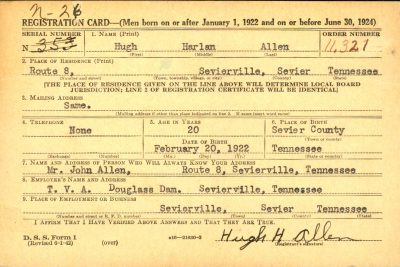 N-26
REGISTRATION CARD—(Men born on or after January 1, 1922 and on or before June 30, 1924)
SERIAL NUMBER 1. NAME (Print) ORDER NUMBER
N- 353 Hugh Harlan Allen 11,321
(First) (Middle) (Last)
2. PLACE OF RESIDENCE (Print)
Route 8, Sevierville, Sevier Tennessee
(Number and street) (Town, township, village, or city) (County) (State)
[THE PLACE OF RESIDENCE GIVEN ON THE LINE ABOVE WILL DETERMINE LOCAL BOARD
JURISDICTION; LINE 2 OF REGISTRATION CERTIFICATE WILL BE IDENTICAL]
3. MAILING ADDRESS
Same.
[Mailing address if other than place indicated on line 2. If same insert word same]
4. TELEPHONE 5. AGE IN YEARS 6. PLACE OF BIRTH
None 20 Sevier County
DATE OF BIRTH
February 20, 1922 Tennessee
7. NAME AND ADDRESS OF PERSON WHO WILL ALWAYS KNOW YOUR ADDRESS
Mr. John Allen, Route 8, Sevierville, Tennessee
8. EMPLOYER'S NAME AND ADDRESS
T. V. A. Douglass Dam. Sevierville, Tennessee
9. PLACE OF EMPLOYMENT OR BUSINESS
Sevierville, Sevier Tennessee
(Number and street or R. F. D. number) (Town) (County) (State)
I AFFIRM THAT I HAVE VERIFIED ABOVE ANSWERS AND THAT THEY ARE TRUE.
D. S. S. Form 1
(Revised 6-1-42) (over) Hugh H Allen
(Registrant's signature)